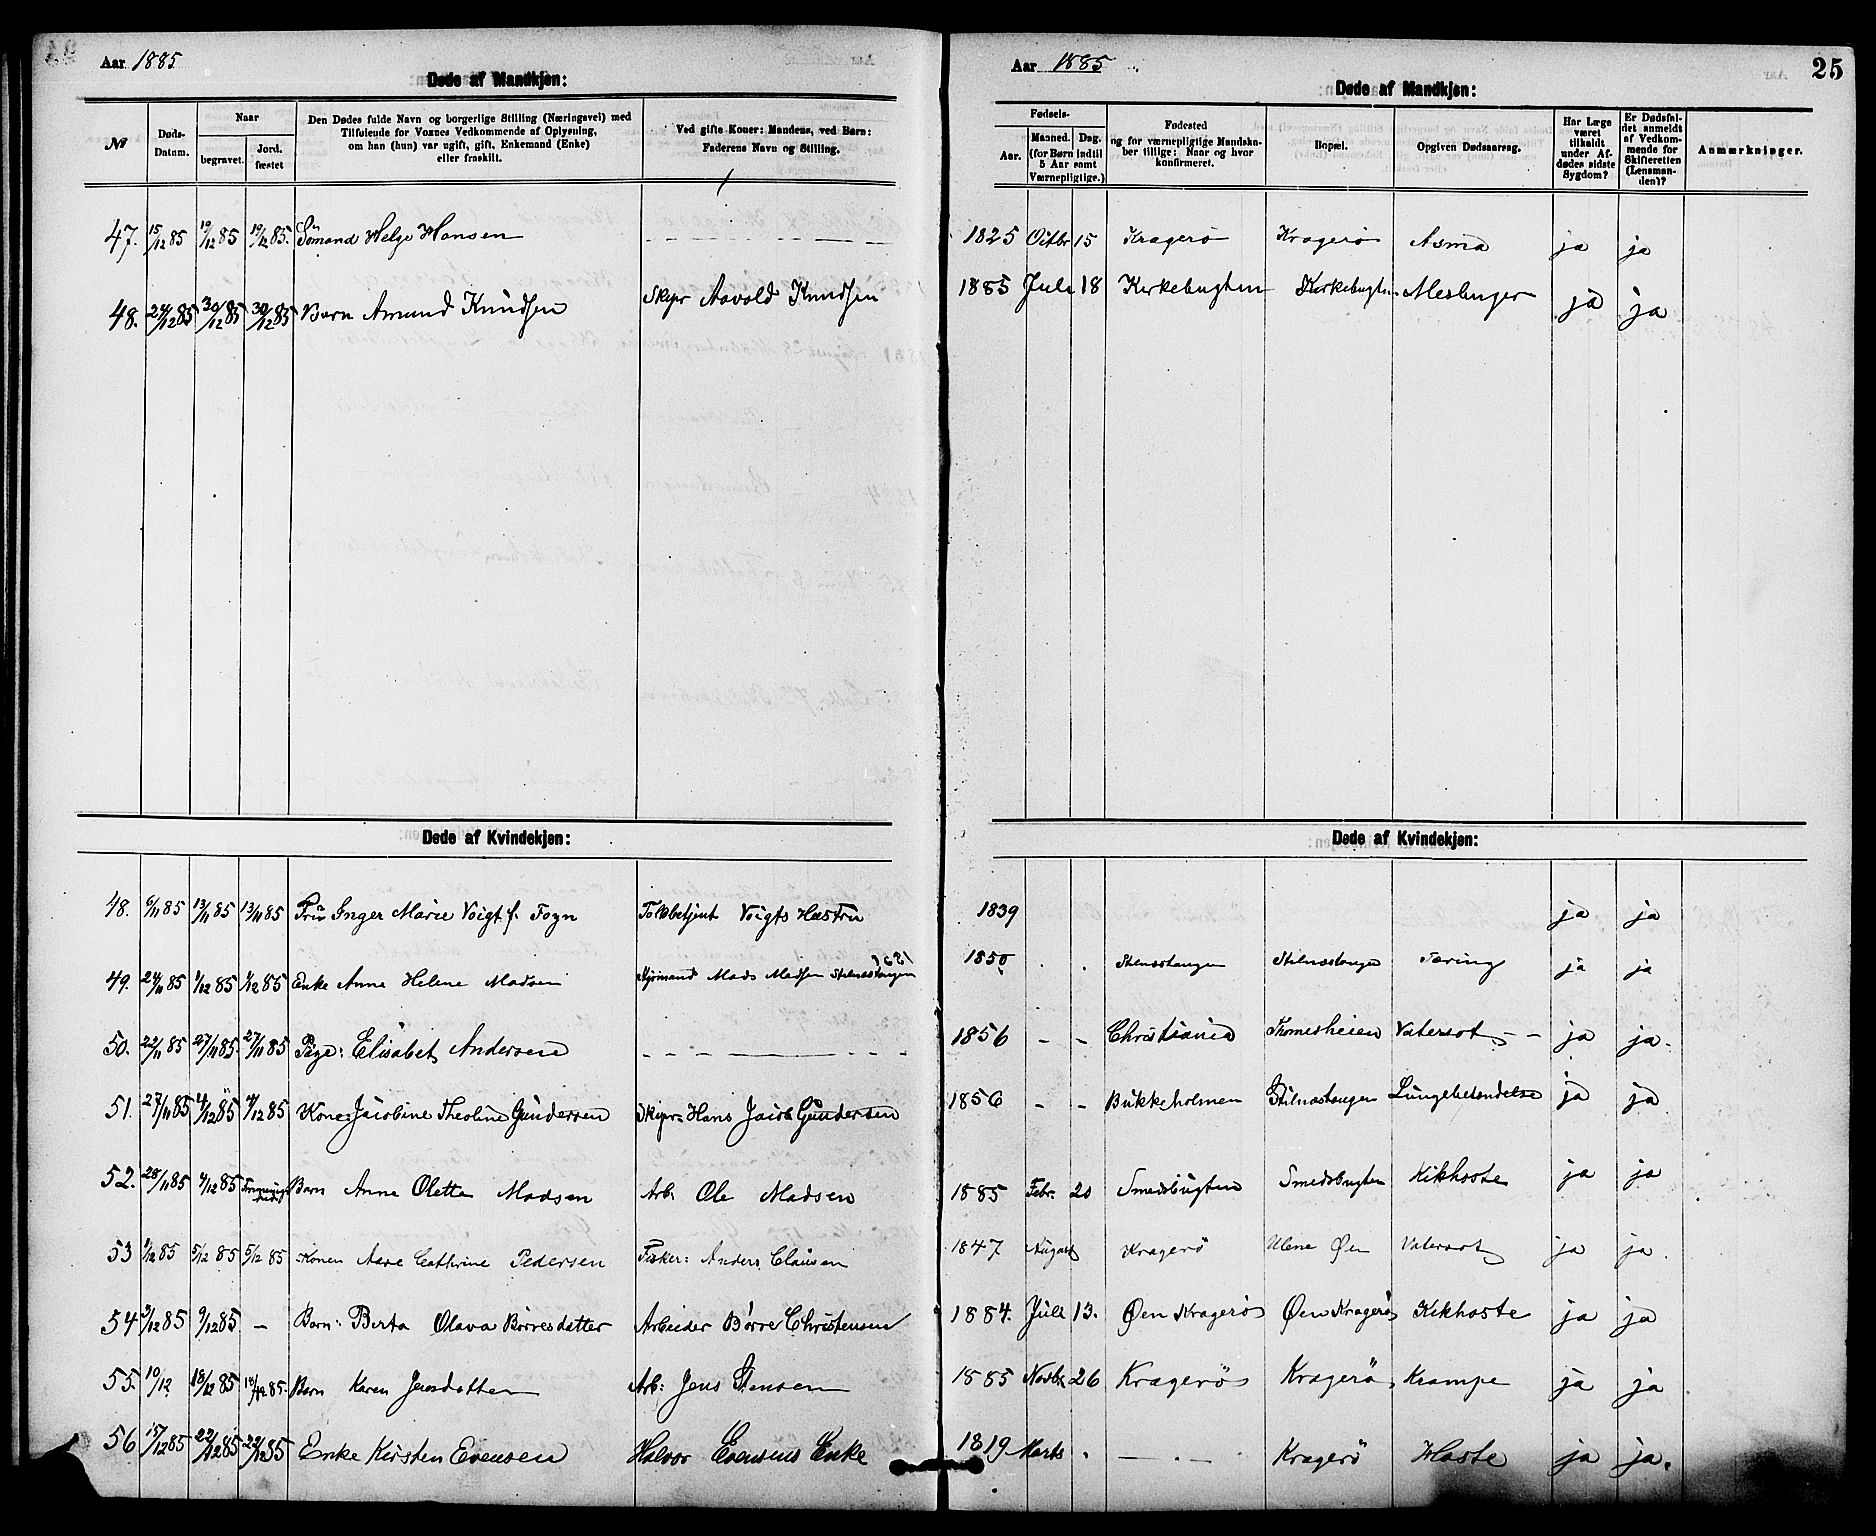 Aar 1885
Døde af Mandkjøn:
№
Døds-Datum.
Naar
begravet.
Jord-fæstet
Den Dødes fulde Navn og borgerlige Stilling (Næringsvei) med
Tilføiende for Voxnes Vedkommende af Oplysning,
om han (hun) var ugift, gift, Enkemand (Enke)
eller fraskilt.
Ved gifte Koner: Mandens, ved Børn:
Faderens Navn og Stilling.
47. 15/12 85 19/12 85 19/12 85. Sömand Helge Hansen
48. 24/12 85 30/12 85 30/12 85 Barn Amund Knudsen Skipr Aavold Knudsen
Døde af Kvindekjøn:
48. 6/11 85 13/11 85 13/11 85 Frü Inger Marie Voigt f. Fogn Toldbetjent Voigts Hustru
49. 24/11 85 1/12 85 1/12 85 Enke Anne Helene Madsen Styrmand Mads Madsen Stilnæstangen
50. 22/11 85 27/11 85 27/11 85 Pige: Elisabet Andersen
51. 27/11 85 4/12 85 4/12 85 Kone: Jacobine Theoline Gundersen Skipr. Hans Jacob Gundersen
52. 28/11 85 4/12 85 Barn Anne Olette Madsen Arb: Ole Madsen
53 1/12 85 5/12 85 5/12 85 Konen Aase Cathrine Pedersen Fisker: Anders Clausen
54 3/12 85 9/12 85 – Barn: Berta Olava Börresdatter Arbeider Börre Christensen
55. 10/12 18/12 85 18/12 85. Barn Karen Jensdatter Arb: Jens Stensen
56 15/12 85 22/12 85 22/12 85 Enke Kirsten Evensen Halvor Evensens Enke
Aar 1885
25
Døde af Mandkjøn:
Fødsels-
Aar.
Maaned. Dag.
(for Børn indtil
5 Aar samt
Værnepligtige.)
Fødested
og for værnepligtige Mandska-
ber tillige: Naar og hvor
konfirmeret.
Bopæl.
Opgiven Dødsaarsag.
Har Læge
været
tilkaldt
under Af-
dødes sidste
Sygdom?
Er Dødsfal-
det anmeldt
af Vedkom-
mende for
Skifteretten
(Lensman-
den)?
Anmærkninger.
1825 Octbr 15 Kragerö Kragerö Asma ja ja
1885 Juli 18 Kirkebugten Kirkebugten Meslinger ja ja
Døde af Kvindekjøn:
1839 ja ja
1850 Stilnæstangen Stilnæstangen Tæring ja ja
1856 – – Christiania Thomesheien Vatersot – ja ja.
1856 – – Bukkholmen Stilnæstangen Lungebetændelse ja ja
1885 Febr. 20 Smedsbugten Smedsbugten Kikhoste ja ja
1847 August Kragerö Øen Vatersot ja ja.
1884. Juli 13. Øen Kragerö Øen Kragerö Kikhoste ja ja
1885 Novbr 26 Kragerö Kragerö, Krampe ja ja
1819 Marts – . – Kragerö Hoste ja ja.